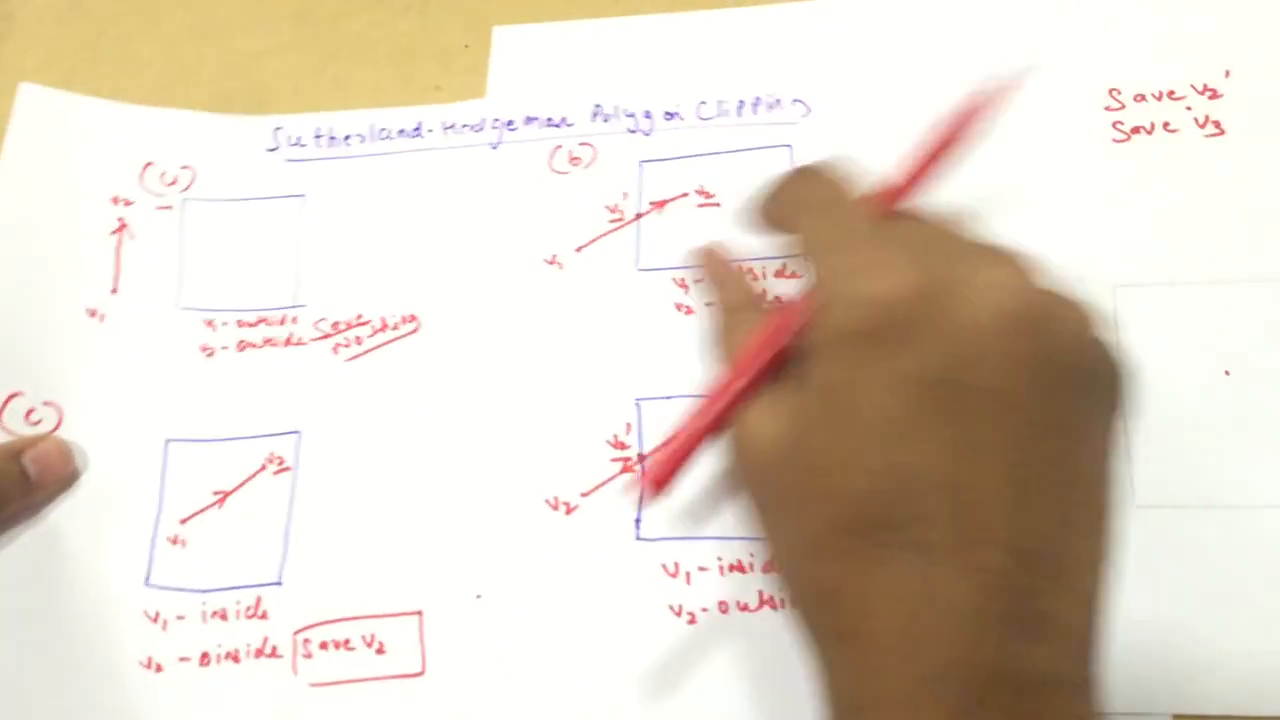 Sutherland-Hodgeman Polygon Clipping
(a)
v2
v1
v1-outside
v2-outside Save
Nothing
(b)
v1'
v2
v1
v2 -
Save v2'
Save v3
(c)
v2
v1
v1-inside
v2-inside Save v2
v2'
v2
v1-insid
v2-outsi